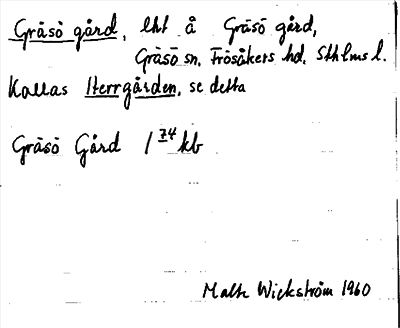 Gräsö gård, lht å Gräsö gård,
Gräsö sn, Frösåkers hd, Sthlms l.
Kallas Herrgården, se detta
Gräsö Gård 1 74 kb
Malte Wickström 1960